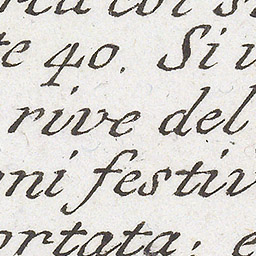 te 40. Si
rive del
ni festiv
ortata; e